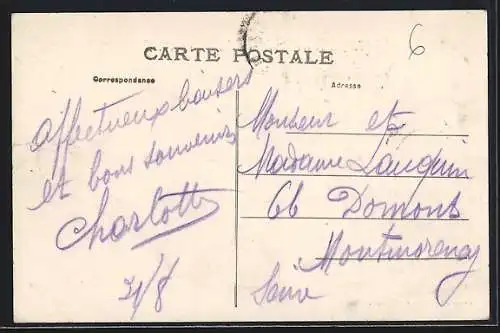 6
CARTE POSTALE
Correspondance
Adresse
affectueux baisers
et bons souvenirs
Charlotte
21/8
Monsieur et
Madame
66 Domont
Montmorency
Seine